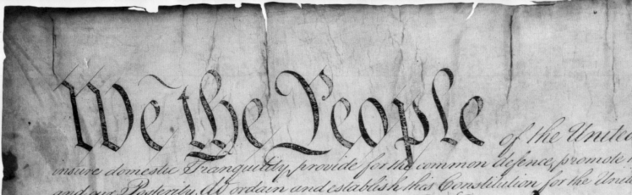 We the People of the United
insure domestic Tranquility, provide for the common defence, promote
and our Posterity, do ordain and establish this Constitution for the United